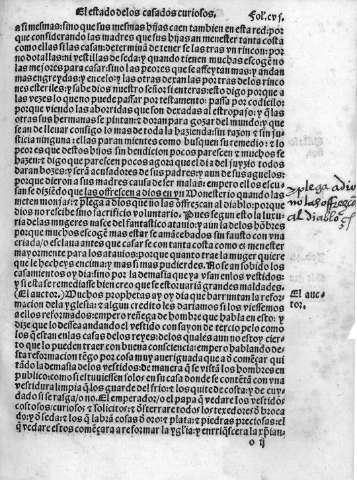 El estado de los casados curiosos. Fol. cv j.
a si mesmas: sino que sus mesmas hijas caen tambien en esta red: por
que considerando las madres que sus hijas an menester tanta costa
como ellas si las casan: determinã de tener se las tras vn rincon: por
no dotallas: ni vestillas de seda: y quando tienen muchas escogẽ no
las mejores para casar: sino las peores que se affeytan mas: y andan
mas engreydas: y encelo: y las otras deran las por tras de los rinco
nes esteriles: y sabe dios nuestro señor si enteras: esto digo porque a
las vezes lo que no puede passar por testamento: passa por codicilo:
porque viendo las aborridas que son dexadas al estropajo: y q̃ las
otras sus hermanas se pintan: doran para gozar del mundo: y que
se an de lleuar consigo lo mas de toda la hazienda: sin razon y sin ju
sticia ninguna: ellas paran mientes como busquen su remedio: z lo
peor es que destos hijos sin bendicion pocos parescen y muchos se
hazen: digo que parescen pocos agora que el dia del juyzio todos
daran bozes: y serã acusadores de sus padres: y aun de sus aguelos:
porque dieron a sus madres causa de ser malas: empero ellos escu
san se diziẽdo que las offrescen a dios en vn Monesterio quando las
meten monjas: z plega a dios que no las offrezcan al diablo: porque
dios no rescibe sino sacrificio voluntario. Pues segun esto la luxu
ria de las mugeres nasce del fantastico atauio: y aun la de los hõbres
porque muchos escogẽ mas estar se amãcebados sin fausto con vna
criada: o esclaua antes que casar se con tanta costa como es menester
mayormente para los atauios: porque quanto trae la muger quiere
que le beche y encima: y mas si mas pudiere des. No sean sobido los
casamientos oy dia: sino por la demasia que ya vsan en los vestidos:
y si esta se remediasse bien creo que se estoruariã grandes maldades.
(El auctor.) Muchos prophetas ay oy dia que barruntan la refor
macion de la yglesia: z algun credito les dariamos si los viessemos
a ellos reformados: empero reñega de hombre que habla en esto: y
dize que lo dessea andando el vestido con sayon de tercio pelo como
los q̃ estan en las casas de los reyes: de los quales aun no estoy cier
to que lo pueden traer con buena consciencia: empero hablando de
sta reformacion tẽgo por cosa muy aueriguada que a dẽ começar qui
tãdo la demasia de los vestidos: de manera q̃ se vistã los hombres en
publico: como si estuuiessen solos en su casa donde se contẽtã con vna
vestidura limpia q̃ los guarde del frio: z los quite de costa: y de cuy
dado si se rasga/o no. El emperador/o el papa q̃ vedare los vestidos
costosos: curiosos z sollicitos: z dsterrare todos los texedores d̃ broca
do: y d̃ seda: z los q̃ labrã cosas d̃ oro: z plata: z piedras preciosas: el
q̃ vedare estos començara a reformar la yglia: y enriq̃scera la xp̃ian-
o ij
plega a dios
no las offrezca
al diablo
El auc-
tor.